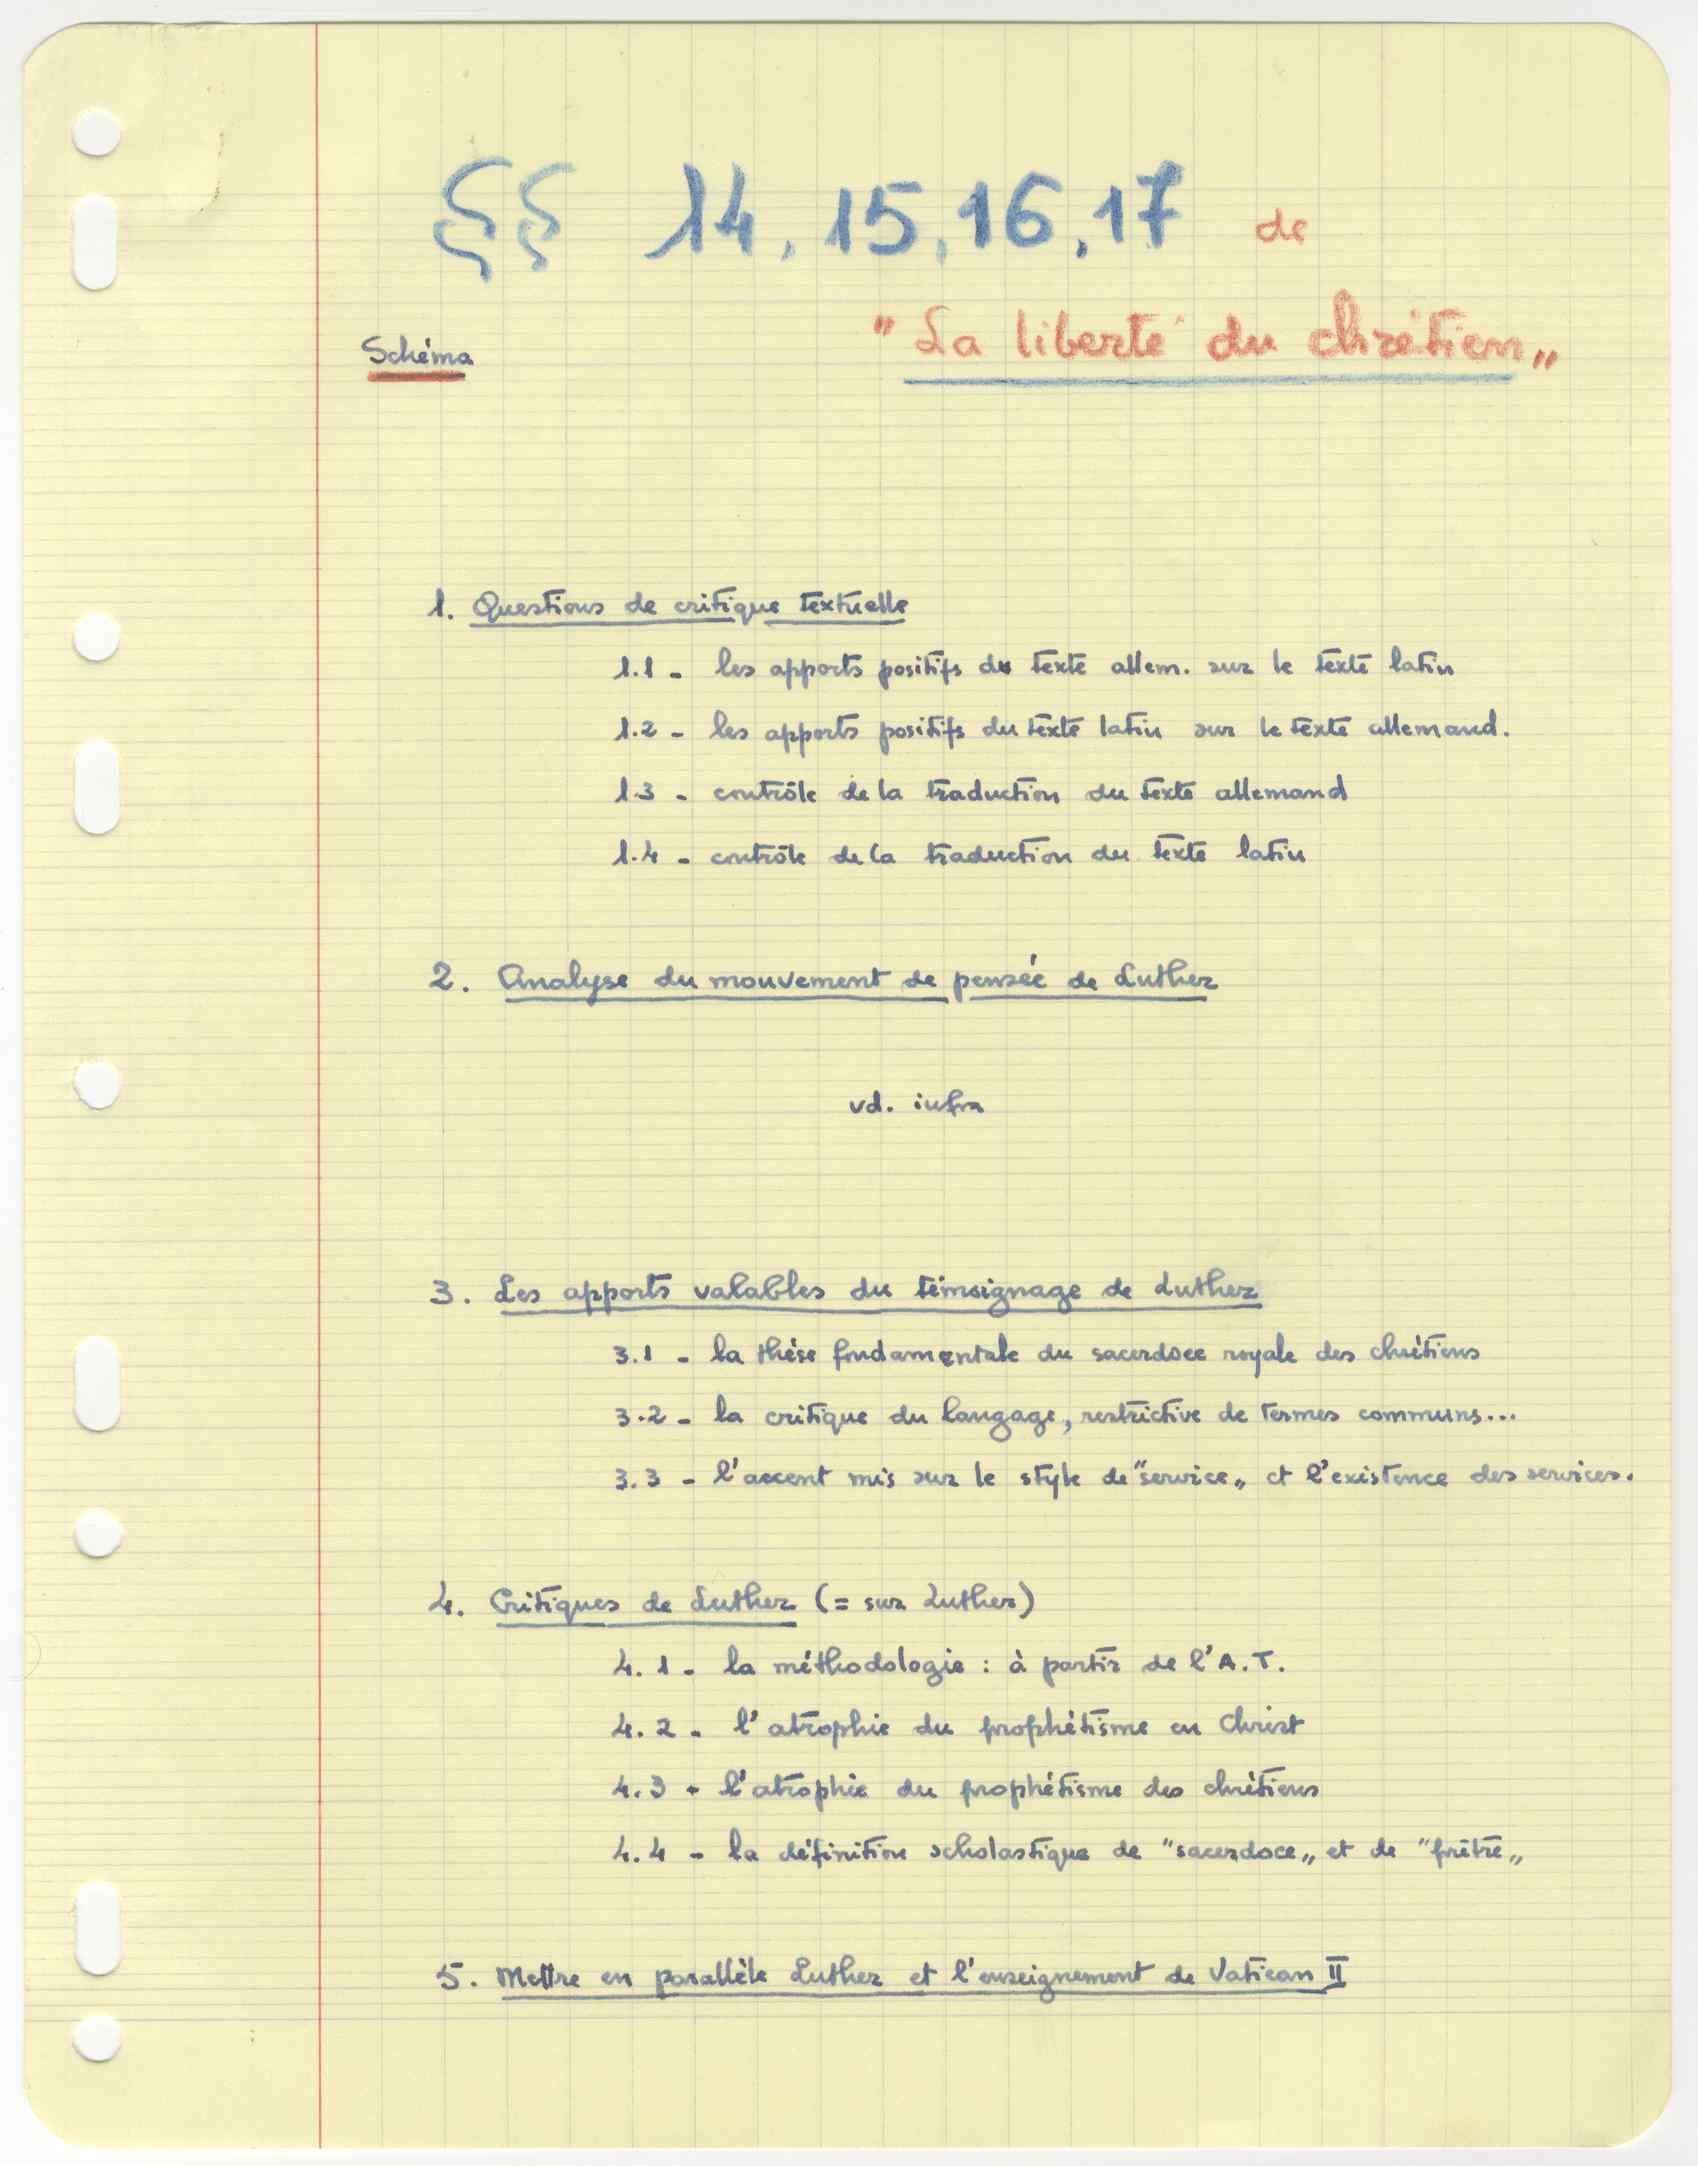 §§ 14, 15, 16, 17 de
"La liberté du chrétien„
Schéma
1. Questions de critique textuelle
1.1 - les apports positifs du texte allem. sur le texte latin
1.2 - les apports positifs du texte latin sur le texte allemand.
1.3 - contrôle de la traduction du texte allemand
1.4 - contrôle de la traduction du texte latin
2. Analyse du mouvement de pensée de Luther
vd. infra
3. Les apports valables du témoignage de Luther
3.1 - la thèse fondamentale du sacerdoce royale des chrétiens
3.2 - la critique du langage, restrictive de termes communs...
3.3 - l'accent mis sur le style de "service„ et l'existence des services.
4. Critiques de Luther (= sur Luther)
4.1 - la méthodologie : à partir de l'A.T.
4.2 - l'atrophie du prophétisme en Christ
4.3 - l'atrophie du prophétisme des chrétiens
4.4 - la définition scholastique de "sacerdoce„ et de "prêtre„
5. Mettre en parallèle Luther et l'enseignement de Vatican II